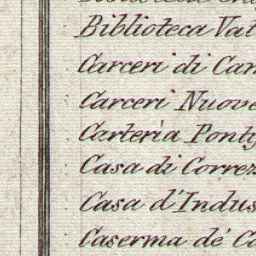 Biblioteca Vat
Carceri di Can
Carceri Nuove
Carteria Ponti
Casa di Correz
Casa d'Indus
Caserma de' Ca